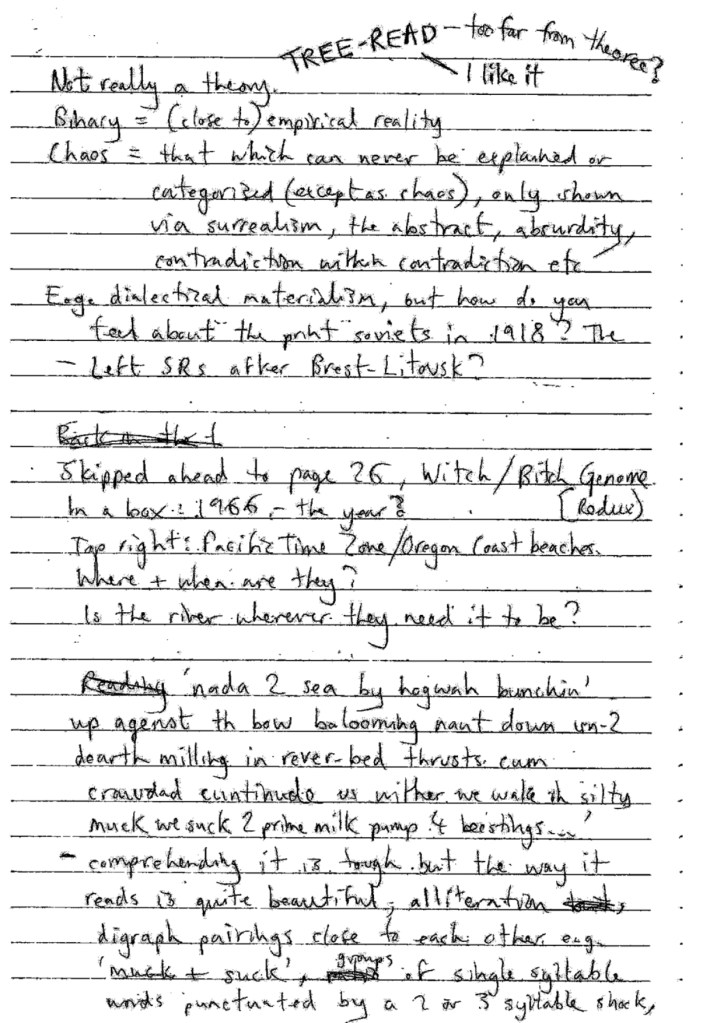 TREE-READ - too far from theoree?
I like it
Not really a theory.
Binary = (close to) empirical reality
Chaos = that which can never be explained or
categorized (except as chaos), only shown
via surrealism, the abstract, absurdity,
contradiction within contradiction etc
E.g. dialectical materialism, but how do you
feel about the print soviets in 1918? The
- Left SRs after Brest-Litovsk?
Back in the t
Skipped ahead to page 26, Witch/Bitch Genome
(Redux)
In a box: 1966 - the year?
Top right: Pacific Time Zone/Oregon Coast beaches.
Where + when are they?
Is the river wherever they need it to be?
Reading 'nada 2 sea by hogwah bunchin'
up agenst th bow balooming naut down un-2
dearth milling in rever-bed thrusts cum
crawdad cuntinude us wither we wake th silty
muck we suck 2 prime milk pump 4 beestings...'
- comprehending it is tough but the way it
reads is quite beautiful, alliteration
digraph pairings close to each other e.g.
'muck + suck', groups of single syllable
words punctuated by a 2 or 3 syllable shock,